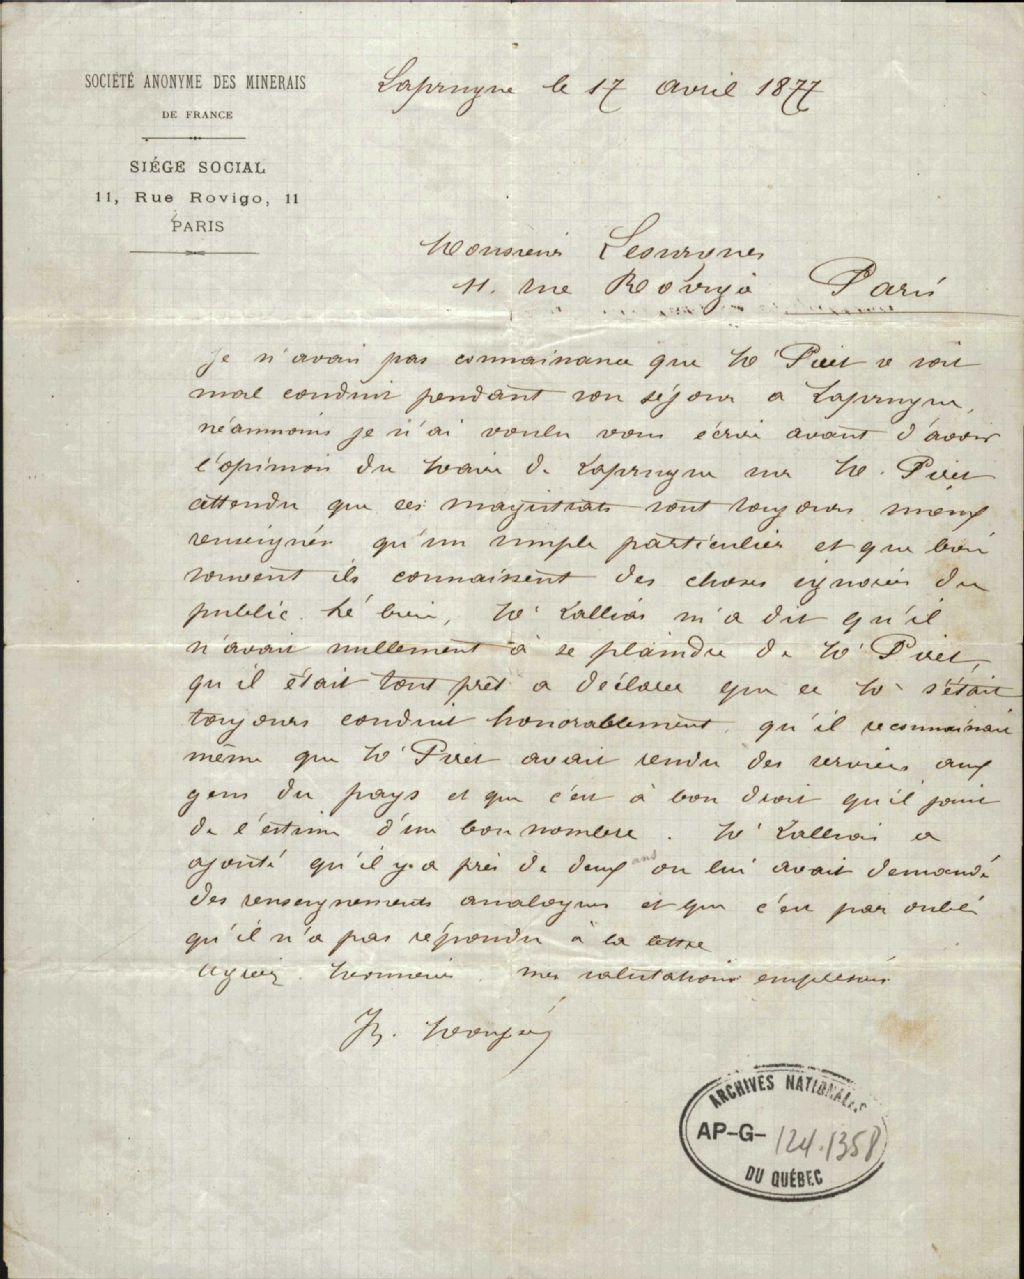 SOCIÉTÉ ANONYME DES MINERAIS
DE FRANCE
SIÉGE SOCIAL
11, Rue Rovigo, 11
PARIS
Laprugne le 17 avril 1877
Monsieur Lesurques
11. rue Rovigo Paris
Je n'avais pas connaissance que Mr Piret se soit
mal conduit pendant son séjour a Laprugne,
néanmoins je n'ai voulu vous écrire avant d'avoir
l'opinion du Maire de Laprugne sur Mr. Piret
attendu que ces magistrats sont toujours mieux
renseignés qu'un simple particulier et que bien
souvent ils connaissent des choses ignorées du
public. hé bien, Mr m'a dit qu'il
n'avait nullement à se plaindre de Mr Piret,
qu'il était tout prêt a déclarer que ce Mr s'était
toujours conduit honorablement, qu'il reconnaissait
même que Mr Piret avait rendu des services aux
gens du pays et que c'est à bon droit qu'il jouit
de l'estime d'un bon nombre. Mr a
ajouté qu'il y a près de deux ans on lui avait demandé
des renseignements analogues et que c'est par oubli
qu'il n'a pas répondu à la lettre
Agréez Monsieur mes salutations empressées
ARCHIVES NATIONALES
AP-G- 124.1358
DU QUÉBEC